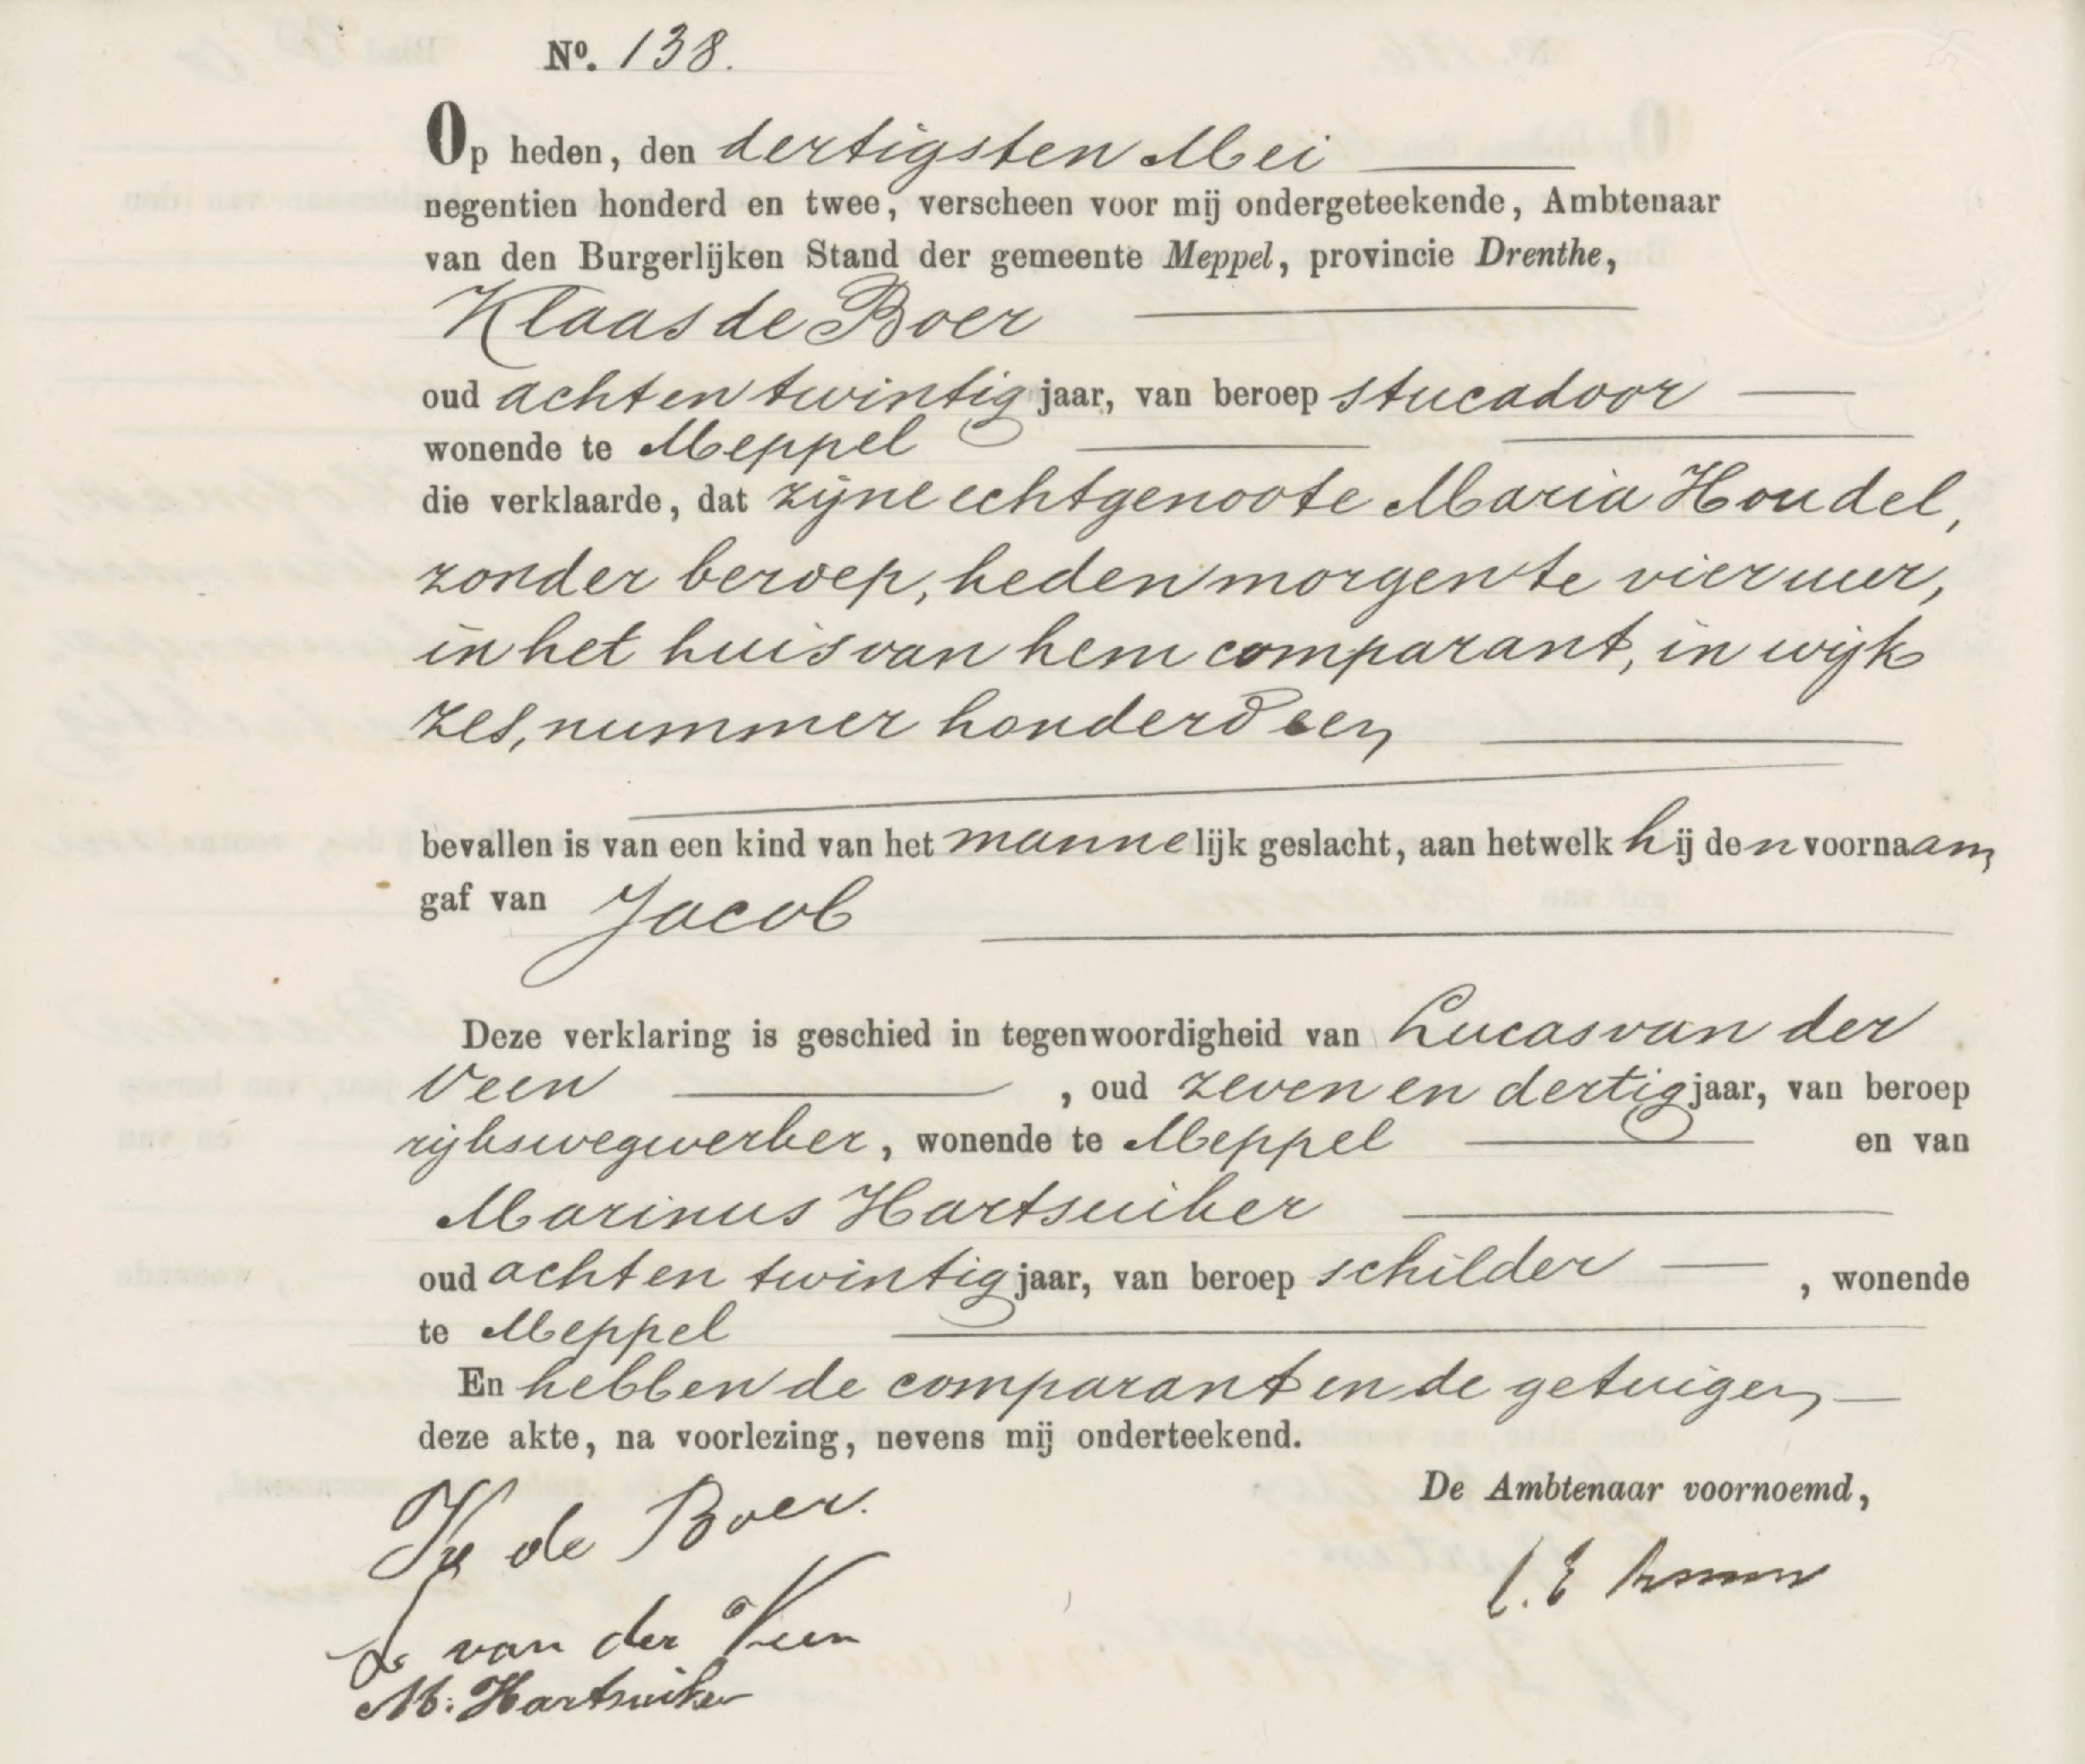 Nº. 138.
Op heden, den dertigsten Mei
negentien honderd en twee, verscheen voor mij ondergeteekende, Ambtenaar
van den Burgerlijken Stand der gemeente Meppel, provincie Drenthe,
Klaas de Boer
oud acht en twintig jaar, van beroep stucadoor
wonende te Meppel
die verklaarde, dat zijne echtgenoote Maria Houdel,
zonder beroep, heden morgen te vier uur,
in het huis van hem comparant, in wijk
zes, nummer honderd een
bevallen is van een kind van het mannelijk geslacht, aan hetwelk hij den voornaam
gaf van Jacob
Deze verklaring is geschied in tegenwoordigheid van Lucas van der
Veen , oud zeven en dertig jaar, van beroep
rijkswegwerker, wonende te Meppel en van
Marinus Hartsuiker
oud acht en twintig jaar, van beroep schilder , wonende
te Meppel
En hebben de comparant en de getuigen
deze akte, na voorlezing, nevens mij onderteekend.
De Ambtenaar voornoemd,
Ks de Boer.
L. van der Veen
M. Hartsuiker